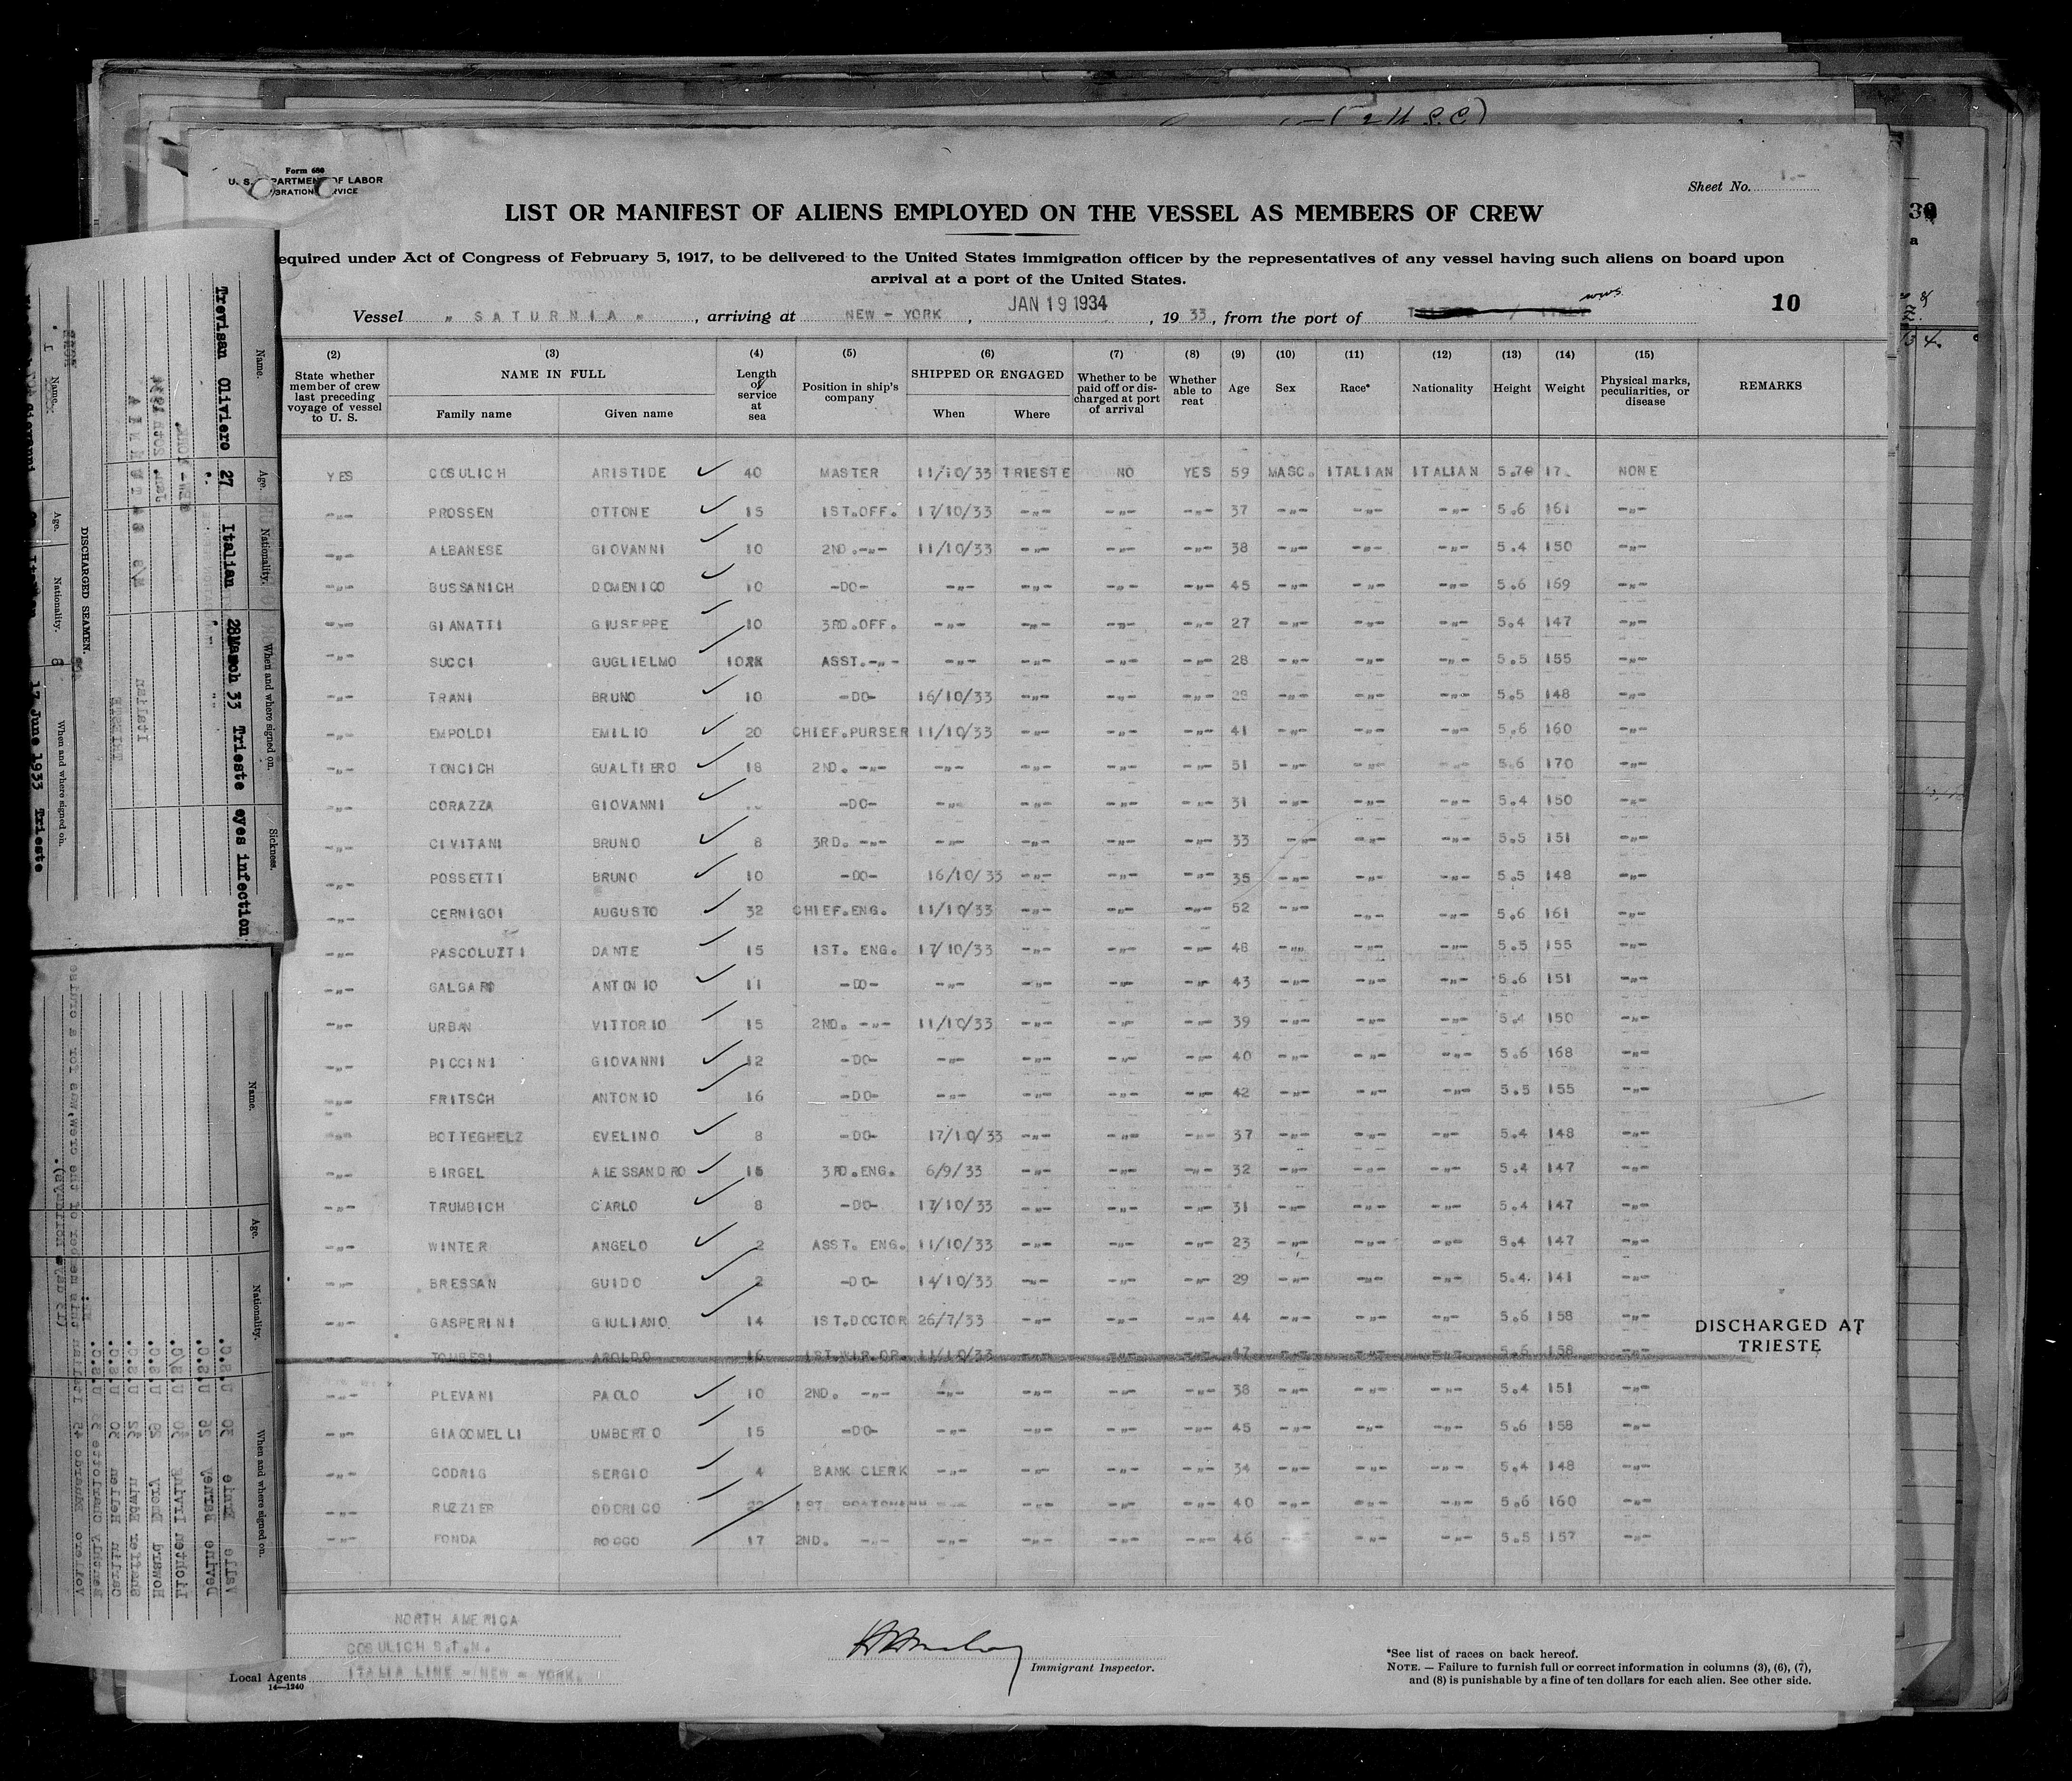 (2 U.S.C.)
Form 680
U. S. DEPARTMENT OF LABOR
IMMIGRATION SERVICE
Sheet No. 1.-
LIST OR MANIFEST OF ALIENS EMPLOYED ON THE VESSEL AS MEMBERS OF CREW
equired under Act of Congress of February 5, 1917, to be delivered to the United States immigration officer by the representatives of any vessel having such aliens on board upon
arrival at a port of the United States.
Vessel " SATURNIA ", arriving at NEW-YORK, JAN 19 1934, 19 33, from the port of
10
(2) (3) (4) (5) (6) (7) (8) (9) (10) (11) (12) (13) (14) (15)
State whether member of crew last preceding voyage of vessel to U. S. NAME IN FULL Family name Given name Length of service at sea Position in ship's company SHIPPED OR ENGAGED When Where Whether to be paid off or discharged at port of arrival Whether able to reat Age Sex Race* Nationality Height Weight Physical marks, peculiarities, or disease REMARKS
YES COSULICH ARISTIDE 40 MASTER 11/10/33 TRIESTE NO YES 59 MASC. ITALIAN ITALIAN 5.7 NONE
-"- PROSSEN OTTONE 15 1ST.OFF. 17/10/33 -"- -"- -"- 37 -"- -"- -"- 5.6 161 -"-
-"- ALBANESE GIOVANNI 10 2ND.-"- 11/10/33 -"- -"- -"- 38 -"- -"- -"- 5.4 150 -"-
-"- BUSSANICH DOMENICO 10 -DO- -"- -"- -"- -"- 45 -"- -"- -"- 5.6 169 -"-
-"- GIANATTI GIUSEPPE 10 3RD.OFF. -"- -"- -"- -"- 27 -"- -"- -"- 5.4 147 -"-
-"- SUCCI GUGLIELMO 10 ASST.-"- -"- -"- -"- -"- 28 -"- -"- -"- 5.5 155 -"-
-"- TRANI BRUNO 10 -DO- 16/10/33 -"- -"- -"- 28 -"- -"- -"- 5.5 148 -"-
-"- EMPOLDI EMILIO 20 CHIEF.PURSER 11/10/33 -"- -"- -"- 41 -"- -"- -"- 5.6 160 -"-
-"- TONCICH GUALTIERO 18 2ND. -"- -"- -"- -"- -"- 51 -"- -"- -"- 5.6 170 -"-
-"- CORAZZA GIOVANNI -DO- -"- -"- -"- -"- 31 -"- -"- -"- 5.4 150 -"-
-"- CIVITANI BRUNO 8 3RD. -"- -"- -"- -"- -"- 33 -"- -"- -"- 5.5 151 -"-
-"- POSSETTI BRUNO 10 -DO- 16/10/33 -"- -"- -"- 35 -"- -"- -"- 5.5 148 -"-
-"- CERNIGOI AUGUSTO 32 CHIEF.ENG. 11/10/33 -"- -"- -"- 52 -"- -"- -"- 5.6 161 -"-
-"- PASCOLUTTI DANTE 15 1ST. ENG. 17/10/33 -"- -"- -"- 48 -"- -"- -"- 5.5 155 -"-
-"- GALGARO ANTONIO 11 -DO- -"- -"- -"- -"- 43 -"- -"- -"- 5.6 151 -"-
-"- URBAN VITTORIO 15 2ND. -"- 11/10/33 -"- -"- -"- 39 -"- -"- -"- 5.4 150 -"-
-"- PICCINI GIOVANNI 12 -DO- -"- -"- -"- -"- 40 -"- -"- -"- 5.6 168 -"-
-"- FRITSCH ANTONIO 16 -DO- -"- -"- -"- -"- 42 -"- -"- -"- 5.5 155 -"-
-"- BOTTEGHELZ EVELINO 8 -DO- 17/10/33 -"- -"- -"- 37 -"- -"- -"- 5.4 148 -"-
-"- BIRGEL ALESSANDRO 3RD.ENG. 6/9/33 -"- -"- -"- 32 -"- -"- -"- 5.4 147 -"-
-"- TRUMBICH CARLO 8 -DO- 17/10/33 -"- -"- -"- 31 -"- -"- -"- 5.4 147 -"-
-"- WINTER ANGELO 2 ASST. ENG. 11/10/33 -"- -"- -"- 23 -"- -"- -"- 5.4 147 -"-
-"- BRESSAN GUIDO 2 -DO- 14/10/33 -"- -"- -"- 29 -"- -"- -"- 5.4 141 -"-
-"- GASPERINI GIULIANO 14 1ST.DOCTOR 26/7/33 -"- -"- -"- 44 -"- -"- -"- 5.6 158 -"- DISCHARGED AT
TRIESTE
-"- TOMBESI AROLDO 16 1ST.WIR.OP. 11/10/33 -"- -"- -"- 47 -"- -"- -"- 5.6 158 -"-
-"- PLEVANI PAOLO 10 2ND. -"- -"- -"- -"- -"- 38 -"- -"- -"- 5.4 151 -"-
-"- GIACOMELLI UMBERTO 15 -DO- -"- -"- -"- -"- 45 -"- -"- -"- 5.6 158 -"-
-"- CODRIG SERGIO 4 BANK CLERK -"- -"- -"- -"- 34 -"- -"- -"- 5.4 148 -"-
-"- RUZZIER ODORICO 1ST. -"- -"- -"- -"- 40 -"- -"- -"- 5.6 160 -"-
-"- FONDA ROCCO 17 2ND. -"- -"- -"- -"- -"- 46 -"- -"- -"- 5.5 157 -"-
NORTH AMERICA
COSULICH S.T.N.
Local Agents ITALIA LINE - NEW - YORK.
14-1240
Immigrant Inspector.
*See list of races on back hereof.
NOTE. — Failure to furnish full or correct information in columns (3), (6), (7),
and (8) is punishable by a fine of ten dollars for each alien. See other side.
Name. Age. Nationality. When and where signed on. Sickness.
Trevisan Oliviero 27 Italian 28March 33 Trieste eyes infection
DISCHARGED SEAMEN.
Name. Age. Nationality. When and where signed on.
17 June 1933 Trieste
Name. Age. Nationality. When and where signed on.